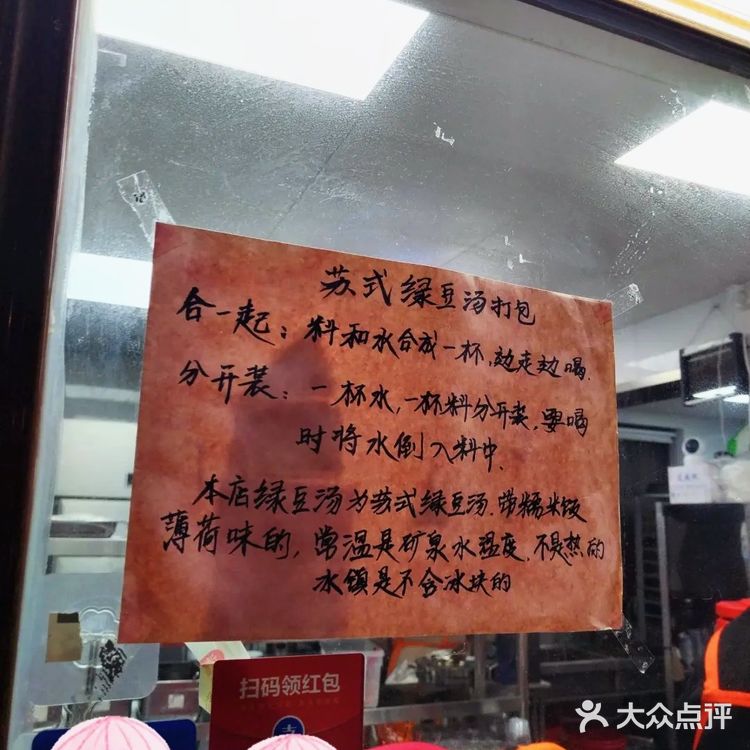 苏式绿豆汤打包
合一起：料和水合成一杯，边走边喝.
分开装：一杯水，一杯料分开装，要喝
时将水倒入料中.
本店绿豆汤为苏式绿豆汤.带糯米饭
薄荷味的，常温是矿泉水温度.不是热的
水镇是不含冰块的
扫码领红包
支
大众点评